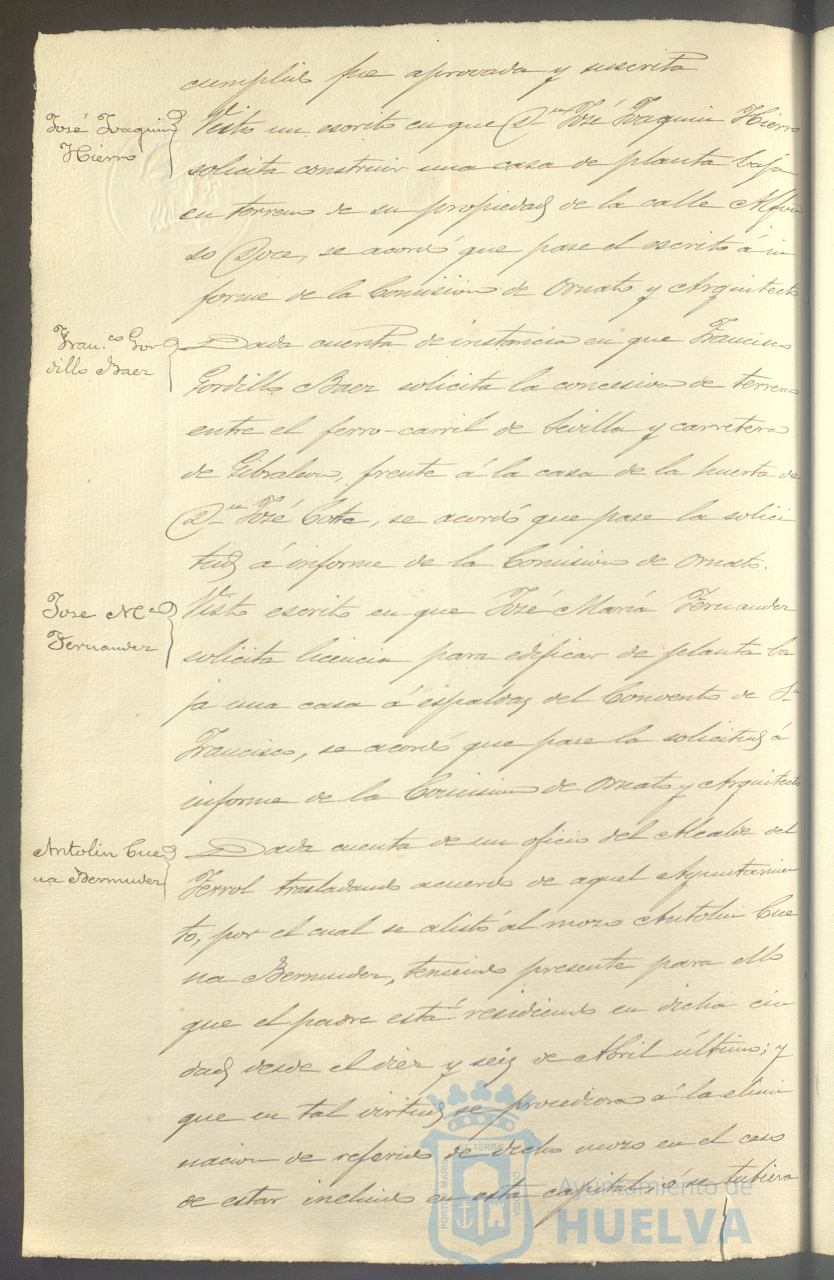 cumplido fue aprovada y suscrita
José Joaquin
Hierro
Visto un escrito en que Dn José Joaquin Hierro
solicita construir una casa de planta baja
en terreno de su propiedad de la calle Alfon
so Doce, se acordó que pase el escrito á in
forme de la Comision de Ornato y Arquitecto
Fran.co Gor
dillo Baez
Dada cuenta de instancia en que Francisco
Gordillo Baez solicita la concesion de terreno
entre el ferro-carril de Sevilla y carretera
de Gibraleon, frente á la casa de la huerta de
Dn José Cotte, se acordó que pase la solici
tud á informe de la Comision de Ornato.
Jose Ma
Fernandez
Visto escrito en que José María Fernandez
solicita licencia para edificar de planta ba
ja una casa á espaldas del Convento de Sn
Francisco, se acordó que pase la solicitud á
informe de la Comision de Ornato y Arquitecto
Antolin Cue
na Bermudez
Dada cuenta de un oficio del Alcalde del
Ferrol trasladando acuerdo de aquel Ayuntamien
to, por el cual se alistó al mozo Antolin Cue
na Bermudez, teniendo presente para ello
que el padre está residiendo en dicha ciu
dad desde el diez y seis de Abril último; y
que en tal virtud se procediera á la elimi
nacion de referido de dicho mozo en el caso
de estar incluido en esta capital, ó se tubiera
PORTUS MARIS ET TERRAE CUSTODIA
Ayuntamiento de
HUELVA